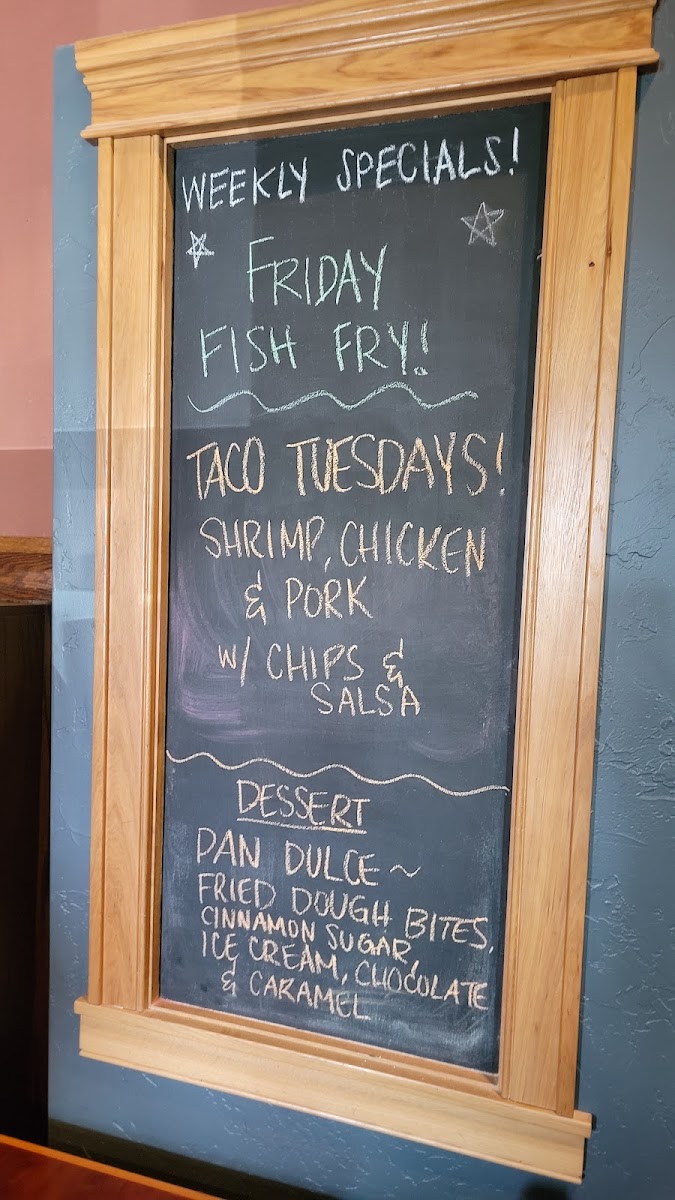 WEEKLY SPECIALS!
FRIDAY
FISH FRY!
TACO TUESDAYS!
SHRIMP, CHICKEN
& PORK
W/ CHIPS &
SALSA
DESSERT
PAN DULCE ~
FRIED DOUGH BITES,
CINNAMON SUGAR,
ICE CREAM, CHOCOLATE
& CARAMEL